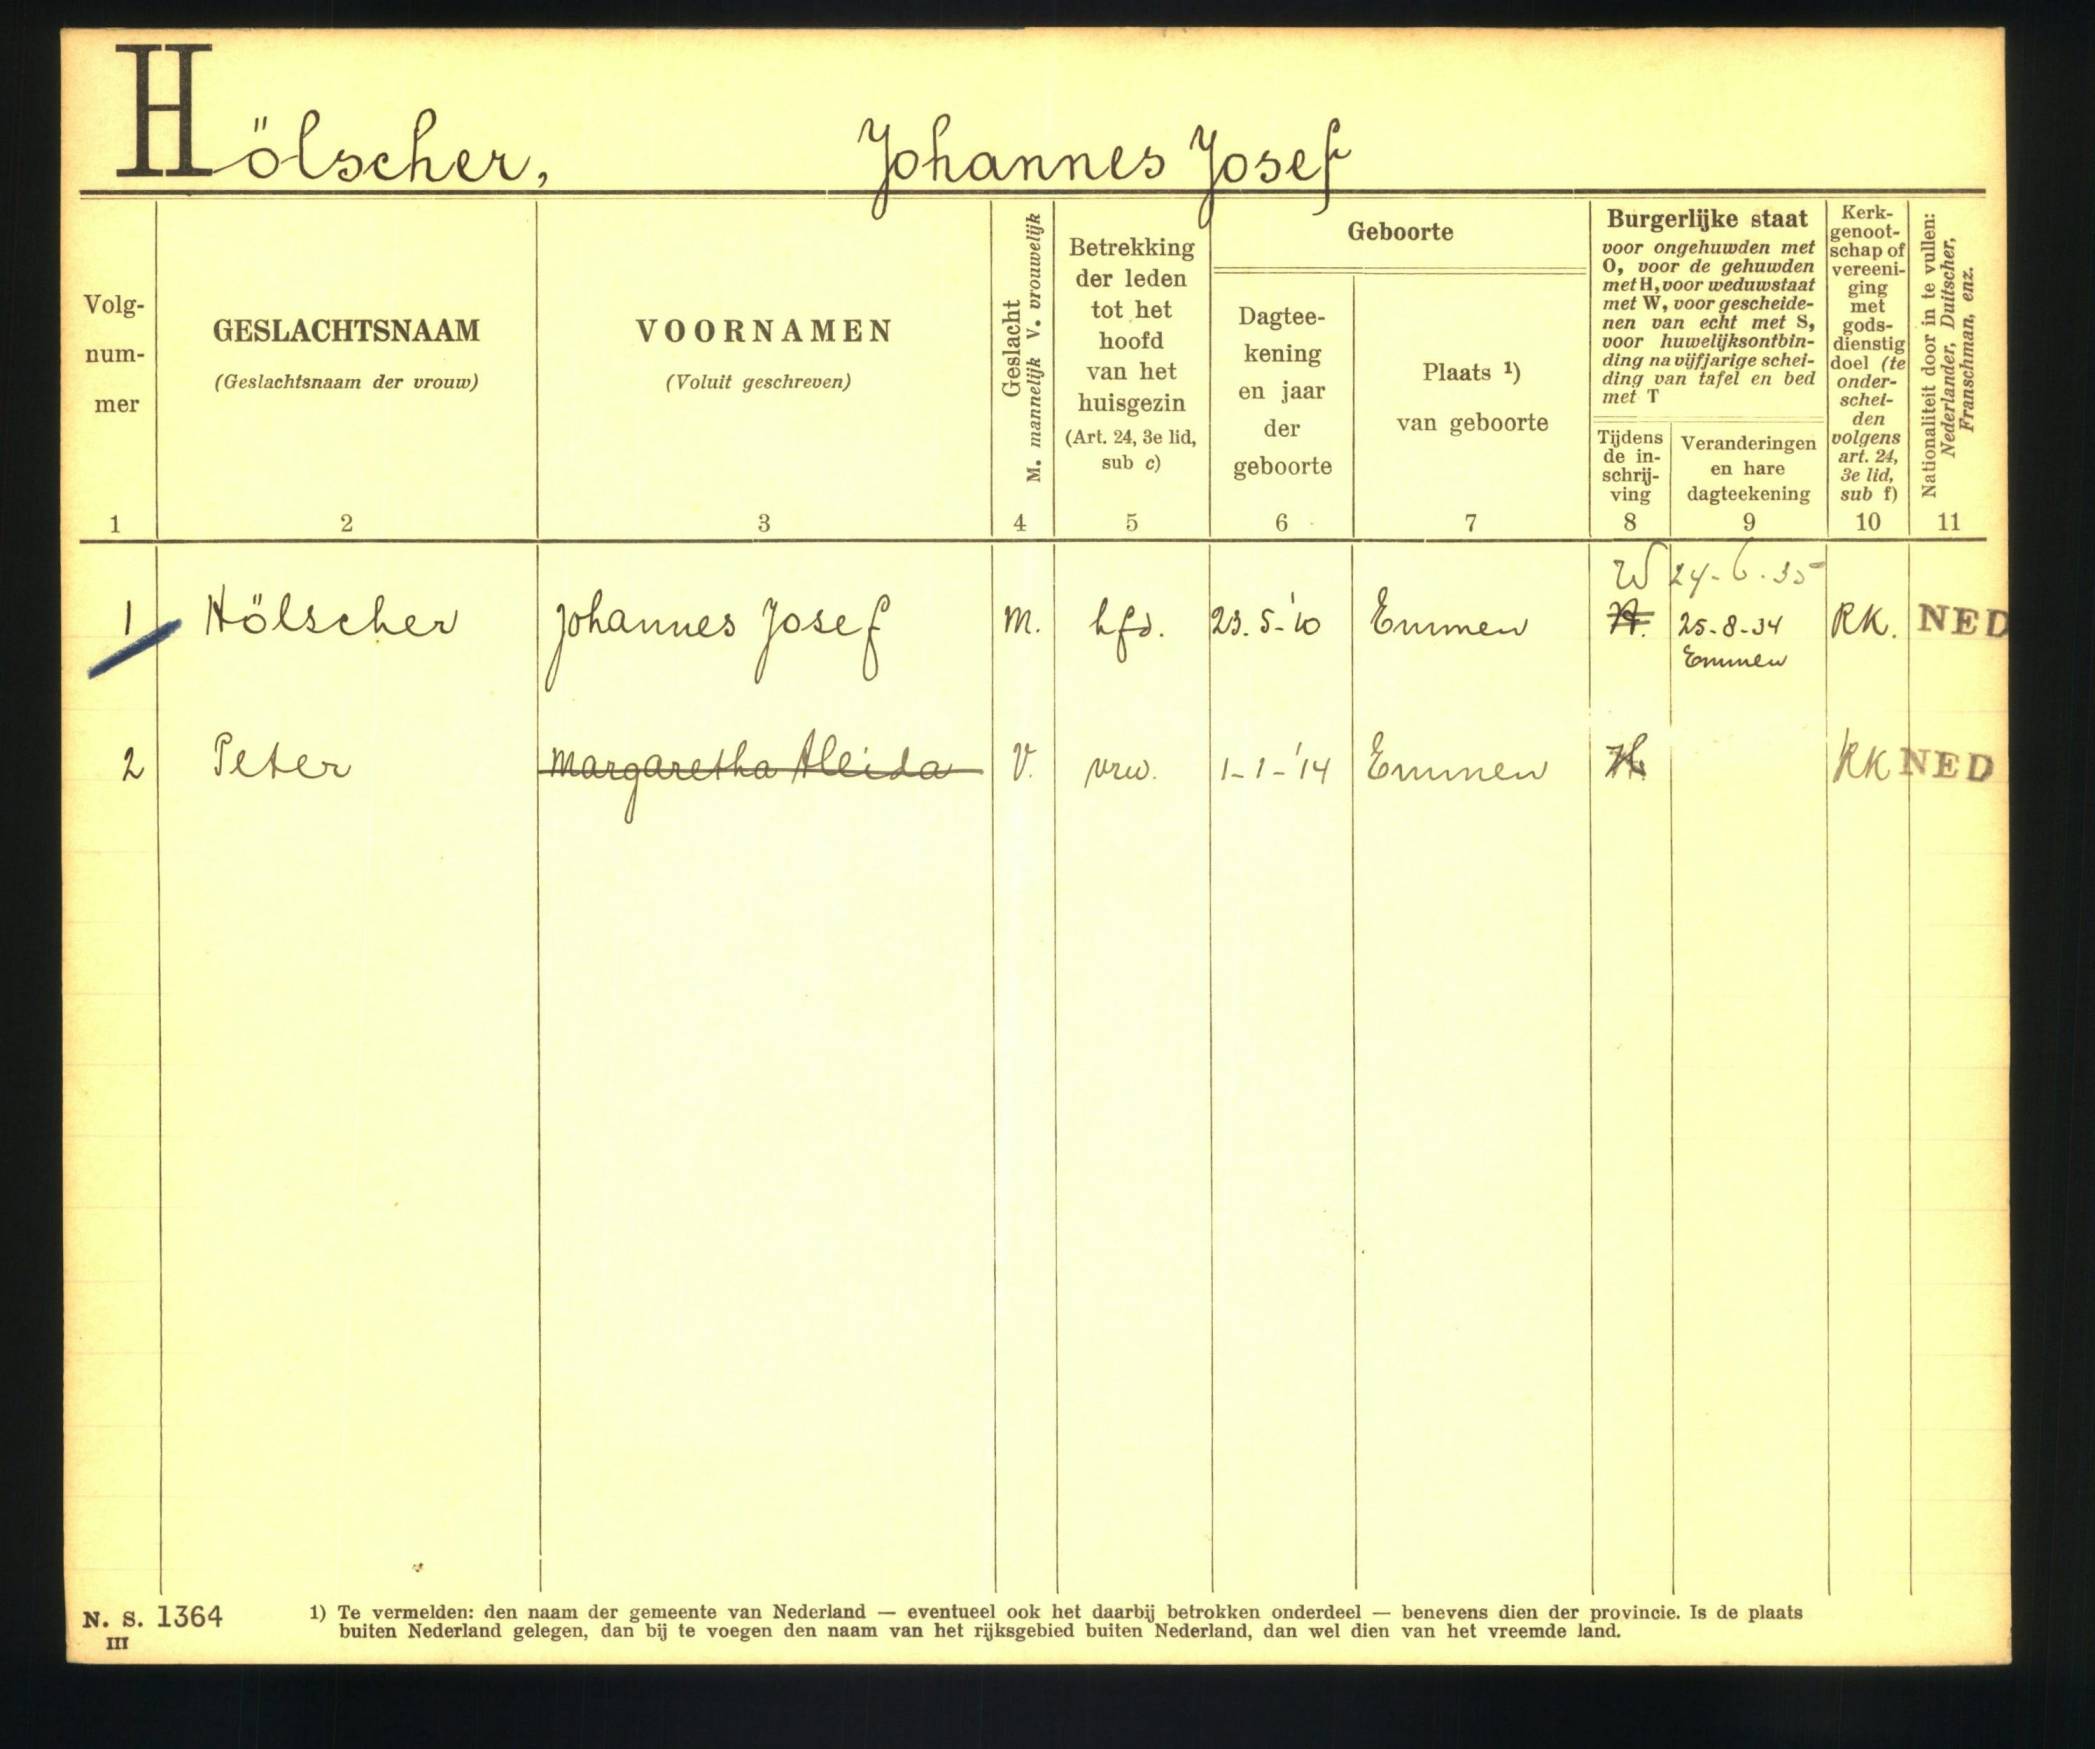 Hölscher, Johannes Josef
Volg-
num-
mer
1
GESLACHTSNAAM
(Geslachtsnaam der vrouw)
2
VOORNAMEN
(Voluit geschreven)
3
Geslacht
M. mannelijk V. vrouwelijk
4
Betrekking
der leden
tot het
hoofd
van het
huisgezin
(Art. 24, 3e lid,
sub c)
5
Geboorte
Dagtee-
kening
en jaar
der
geboorte
6
Plaats 1)
van geboorte
7
Burgerlijke staat
voor ongehuwden met
O, voor de gehuwden
met H, voor weduwstaat
met W, voor gescheide-
nen van echt met S,
voor huwelijksontbin-
ding na vijfjarige schei-
ding van tafel en bed
met T
Tijdens
de in-
schrij-
ving
8
Veranderingen
en hare
dagteekening
9
Kerk-
genoot-
schap of
vereeni-
ging
met
gods-
dienstig
doel (te
onder-
schei-
den
volgens
art. 24,
3e lid,
sub f)
10
Nationaliteit door in te vullen:
Nederlander, Duitscher,
Franschman, enz.
11
W 24-6-35
1 Hölscher Johannes Josef M. hfd. 23.5-'10 Emmen H. 25-8-34 RK. NED
Emmen
2 Peter Margaretha Aleida V. vrw. 1-1-'14 Emmen H. RK NED
N. S. 1364
III
1) Te vermelden: den naam der gemeente van Nederland — eventueel ook het daarbij betrokken onderdeel — benevens dien der provincie. Is de plaats
buiten Nederland gelegen, dan bij te voegen den naam van het rijksgebied buiten Nederland, dan wel dien van het vreemde land.